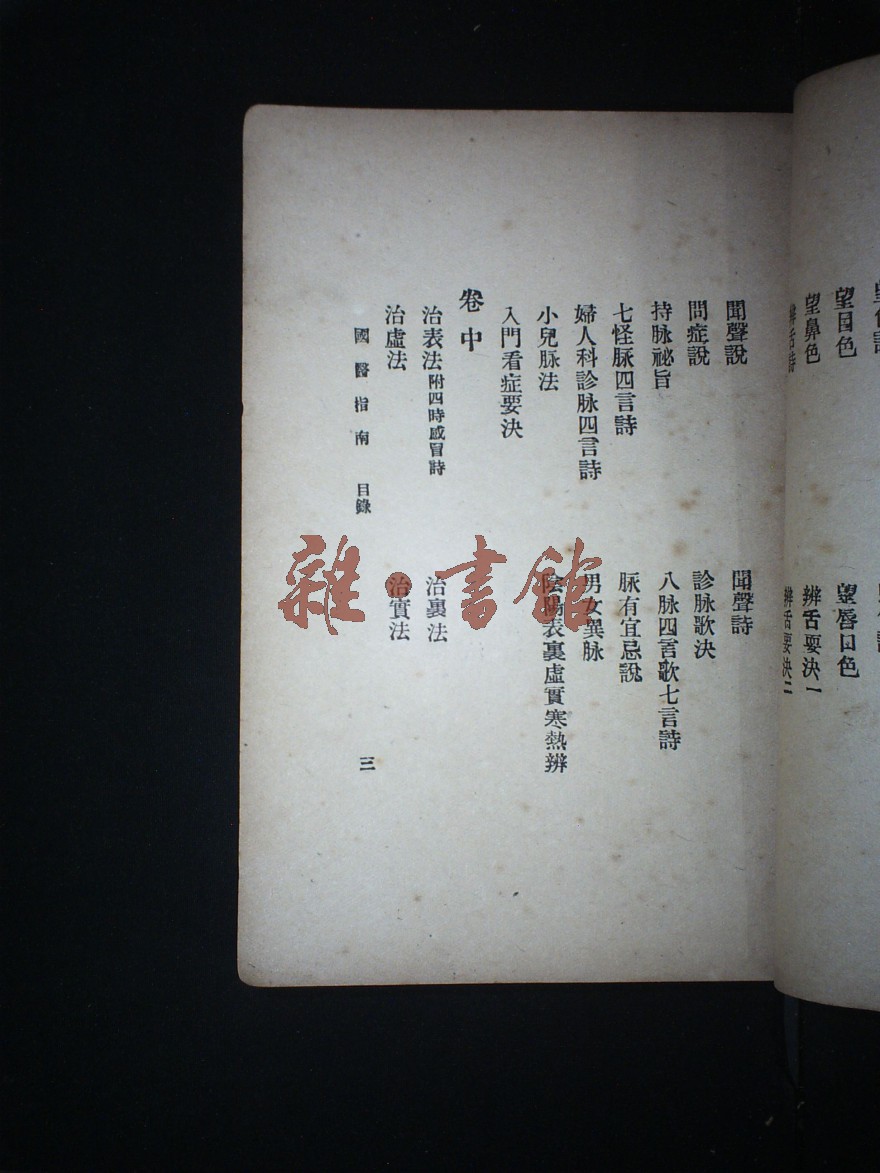 望目色
望唇口色
望鼻色
辨舌要决一
辨舌詩
辨舌要决二
聞聲說
聞聲詩
問症說
診脉歌決
持脉祕旨
八脉四言歌七言詩
七怪脈四言詩
脈有宜忌說
婦人科診脉四言詩
男女異脉
小兒脈法
陰陽表裏虛實寒熱辨
入門看症要決
卷中
治表法附四時感冒詩
治裏法
治虛法
治實法
國醫指南 目錄
三
雜·書館